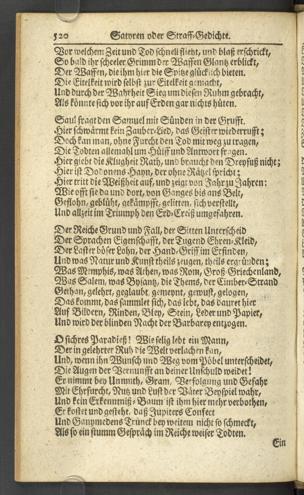 520 Satyren oder Straff-Gedichte.
Vor welchem Zeit und Tod schnell flieht, und blaß erschrickt,
So bald ihr scheeler Grimm der Waffen Glantz erblickt,
Der Waffen, die ihm hier die Spitze glücklich bieten.
Die Eitelkeit wird selbst zur Eitelkeit gemacht,
Und durch der Wahrheit Sieg um diesen Ruhm gebracht,
Als könte sich vor ihr auf Erden gar nichts hüten.
Saul fragt den Samuel mit Sünden in der Grufft.
Hier schwärmt kein Zauber-Lied, das Geister wiederrufft;
Doch kan man, ohne Furcht den Tod mit weg zu tragen,
Die Todten allemal um Hülff und Antwort fragen.
Hier giebt die Klugheit Rath, und braucht den Dreyfuß nicht;
Hier ist Dodonens Hayn, der ohne Rätzel spricht;
Hier tritt die Weißheit auf, und zeigt von Jahr zu Jahren:
Wie offt sie da und dort, von Ganges bis ans Belt,
Geflohn, geblüht, gekämpfft, gelitten, sich verstellt,
Und allzeit im Triumph den Erd-Creiß umgefahren.
Der Reiche Grund und Fall, der Sitten Unterscheid
Der Sprachen Eigenschafft, der Tugend Ehren-Kleid,
Der Laster böser Lohn, der Hand-Griff im Erfinden,
Und was Natur und Kunst theils zeugen, theils ergründen;
Was Memphis, was Athen, was Rom, Groß-Griechenland,
Was Salem, was Byzanz, die Thems, der Cimber-Strand
Gethan, gelehrt, geglaubt, gemeynt, gewust, gelogen,
Das kommt, das sammlet sich, das lebt, das dauret hier
Auf Bildern, Rinden, Bley, Stein, Leder und Papier,
Und wird der blinden Nacht der Barbarey entzogen.
O sichres Paradieß! Wie selig lebt ein Mann,
Der in gelehrter Ruh die Welt verlachen kan,
Und, wenn ihn Wunsch und Weg vom Pöbel unterscheidet,
Die Augen der Vernunfft an deiner Unschuld weidet!
Er nimmt bey Unmuth, Gram, Verfolgung und Gefahr
Mit Ehrfurcht, Nutz und Lust der Väter Beyspiel wahr,
Und kein Erkenntniß-Baum ist ihm hier mehr verbothen,
Er kostet und gesteht, daß Jupiters Confect
Und Ganymedens Trunck bey weitem nicht so schmeckt,
Als so ein stumm Gespräch im Reiche weiser Todten.
Ein